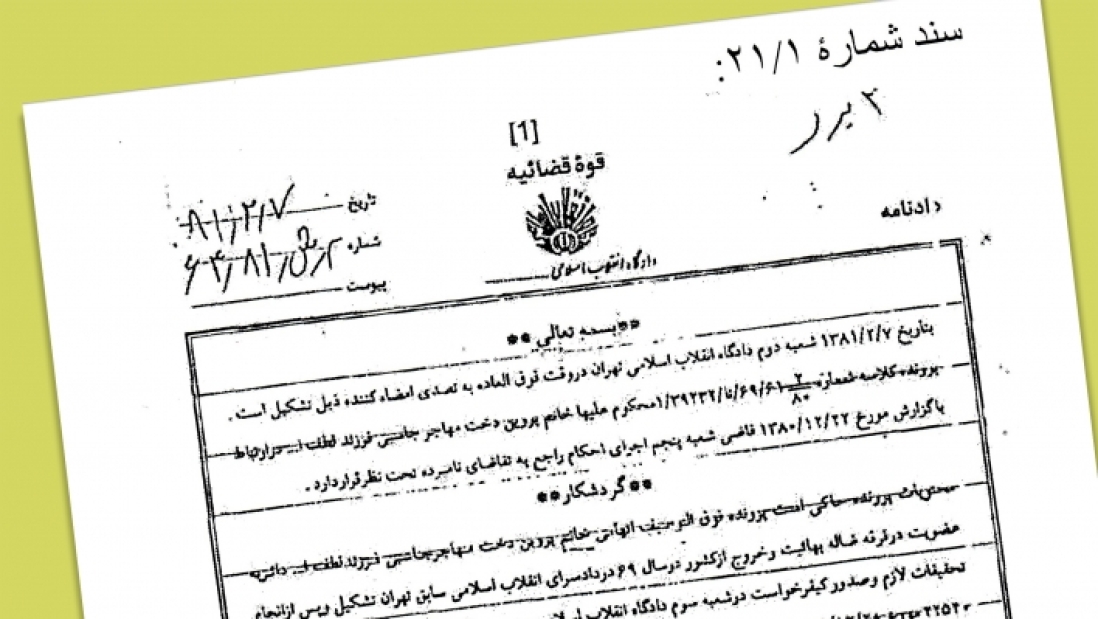 سند شمارهٔ ۲۱/۱:
[1]
قوهٔ قضائیه
تاریخ ۸۱/۲/۷
شماره
پیوست
دادگاه انقلاب اسلامی
دادنامه
**بسمه تعالی**
بتاریخ ۱۳۸۱/۲/۷ شعبه دوم دادگاه انقلاب اسلامی تهران دروقت فوق العاده به تصدی امضاء کننده ذیل تشکیل است .
پرونده کلاسه محکوم علیها خانم پروین دخت مهاجر جاسبی فرزند لطف ا... درارتباط
باگزارش مورخ ۱۳۸۰/۱۲/۲۲ قاضی شعبه پنجم اجرای احکام راجع به تقاضای نامبرده تحت نظر قراردارد .
**گردشکار**
محتویات پرونده حاکی است پرونده فوق التوصیف اتهامی خانم پروین دخت مهاجر جاسبی فرزند لطف ا... دائر به
عضویت درفرقه ضاله بهائیت وخروج ازکشور درسال ۶۹ دردادسرای انقلاب اسلامی سابق تهران تشکیل وپس ازانجام
تحقیقات لازم وصدور کیفرخواست درشعبه سوم دادگاه انقلاب